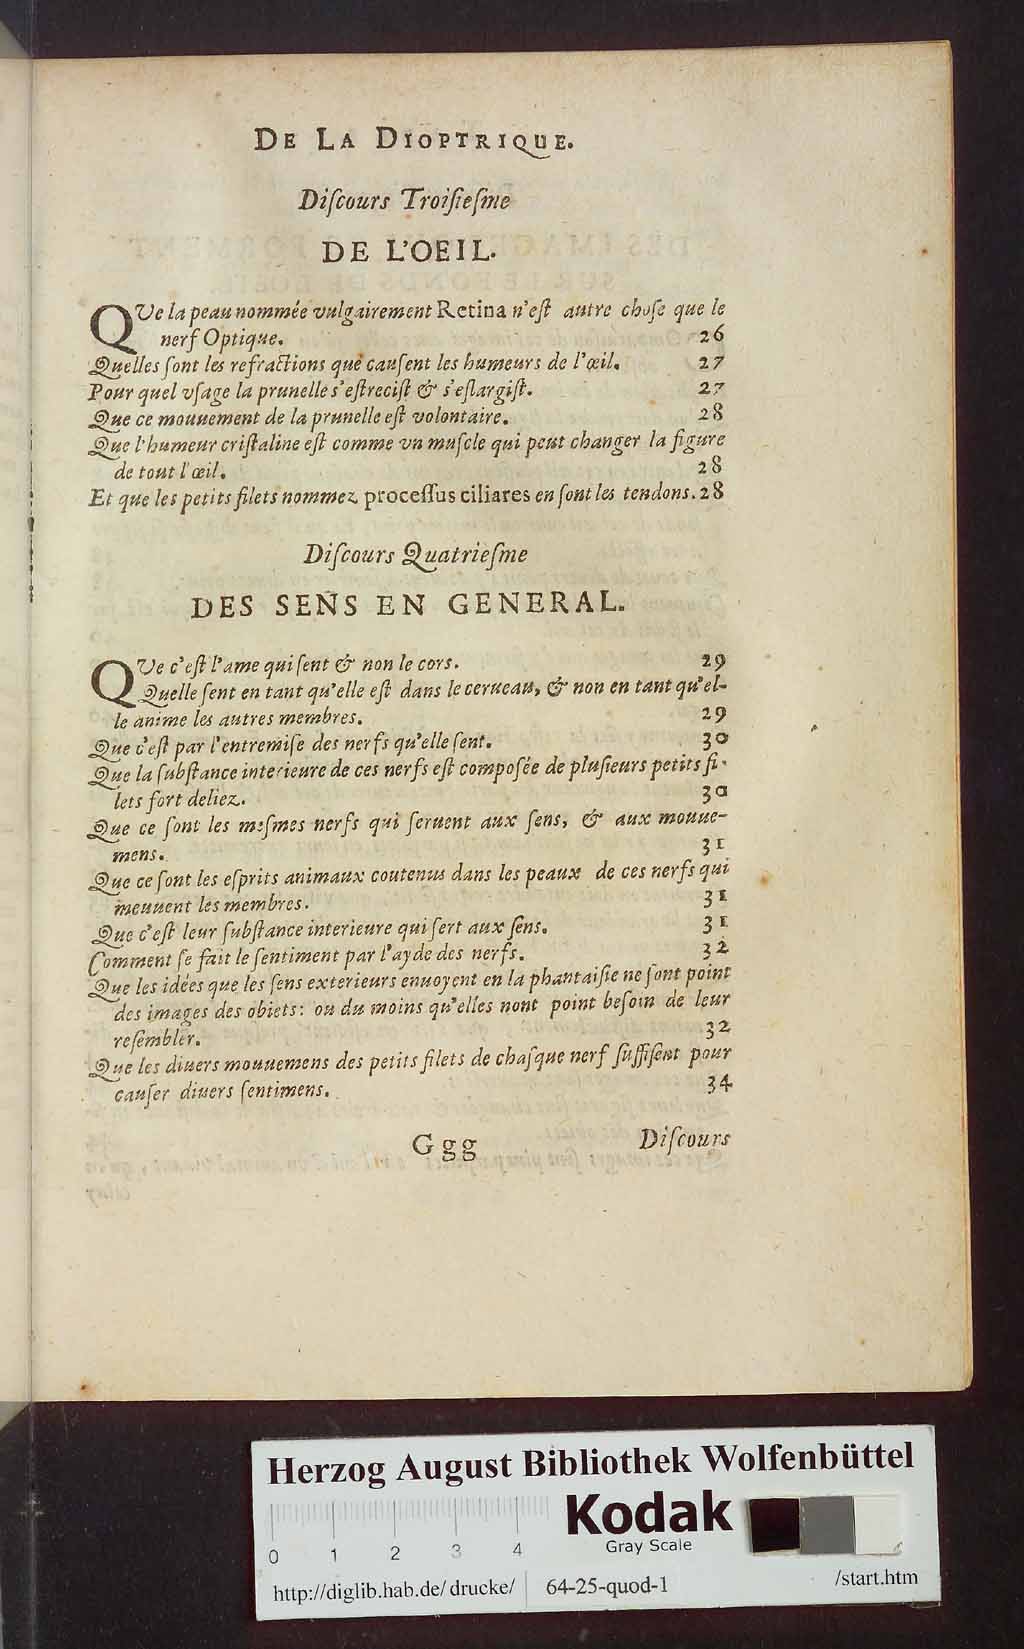 DE LA DIOPTRIQUE.
Diſcours Troiſieſme
DE L'OEIL.
QVe la peau nommée vulgairement Retina n'eſt autre choſe que le
nerf Optique. 26
Quelles ſont les refractions que cauſent les humeurs de l'œil. 27
Pour quel vſage la prunelle s'eſtreciſt & s'eſlargiſt. 27
Que ce mouuement de la prunelle eſt volontaire. 28
Que l'humeur criſtaline eſt comme vn muſcle qui peut changer la figure
de tout l'œil. 28
Et que les petits filets nommez proceſſus ciliares en ſont les tendons. 28
Diſcours Quatrieſme
DES SENS EN GENERAL.
QVe c'eſt l'ame qui ſent & non le cors. 29
Quelle ſent en tant qu'elle eſt dans le cerueau, & non en tant qu'el-
le anime les autres membres. 29
Que c'eſt par l'entremiſe des nerfs qu'elle ſent. 30
Que la ſubſtance interieure de ces nerfs eſt compoſée de pluſieurs petits fi-
lets fort deliez. 30
Que ce ſont les meſmes nerfs qui ſeruent aux ſens, & aux mouue-
mens. 31
Que ce ſont les eſprits animaux coutenus dans les peaux de ces nerfs qui
meuuent les membres. 31
Que c'eſt leur ſubſtance interieure qui ſert aux ſens. 31
Comment ſe fait le ſentiment par l'ayde des nerfs. 32
Que les idées que les ſens exterieurs enuoyent en la phantaiſie ne ſont point
des images des obiets: ou du moins qu'elles nont point beſoin de leur
reſembler. 32
Que les diuers mouuemens des petits filets de chaſque nerf ſuffiſent pour
cauſer diuers ſentimens. 34
Ggg Diſcours
Herzog August Bibliothek Wolfenbüttel
Kodak
Gray Scale
0 1 2 3 4
http://diglib.hab.de/drucke/ 64-25-quod-1 /start.htm